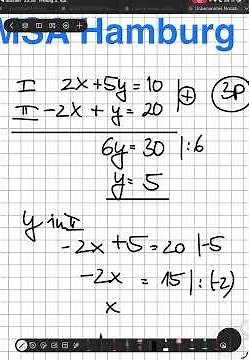 MSA Hamburg
I 2x+5y=10 | ⊕ 3P
II -2x+y=20
6y=30 |:6
y=5
y in II
-2x+5=20 |-5
-2x =15 |:(-2)
x